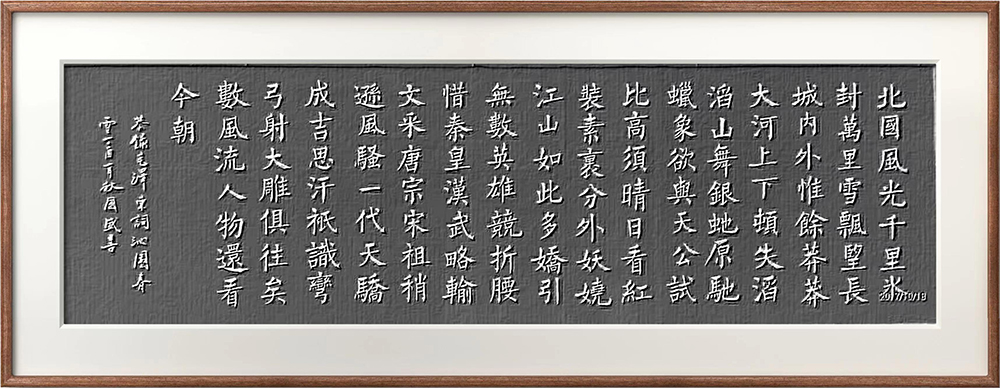 北國風光千里氷
封萬里雪飄望長
城內外惟餘莽莽
大河上下頓失滔
滔山舞銀虵原馳
蠟象欲與天公試
比高須晴日看紅
裝素裹分外妖嬈
江山如此多嬌引
無數英雄競折腰
惜秦皇漢武略輸
文采唐宗宋祖稍
遜風騷一代天驕
成吉思汗衹識彎
弓射大雕俱往矣
數風流人物還看
今朝
毛澤東詞沁園春
雪丁酉年秋
2017/10/18